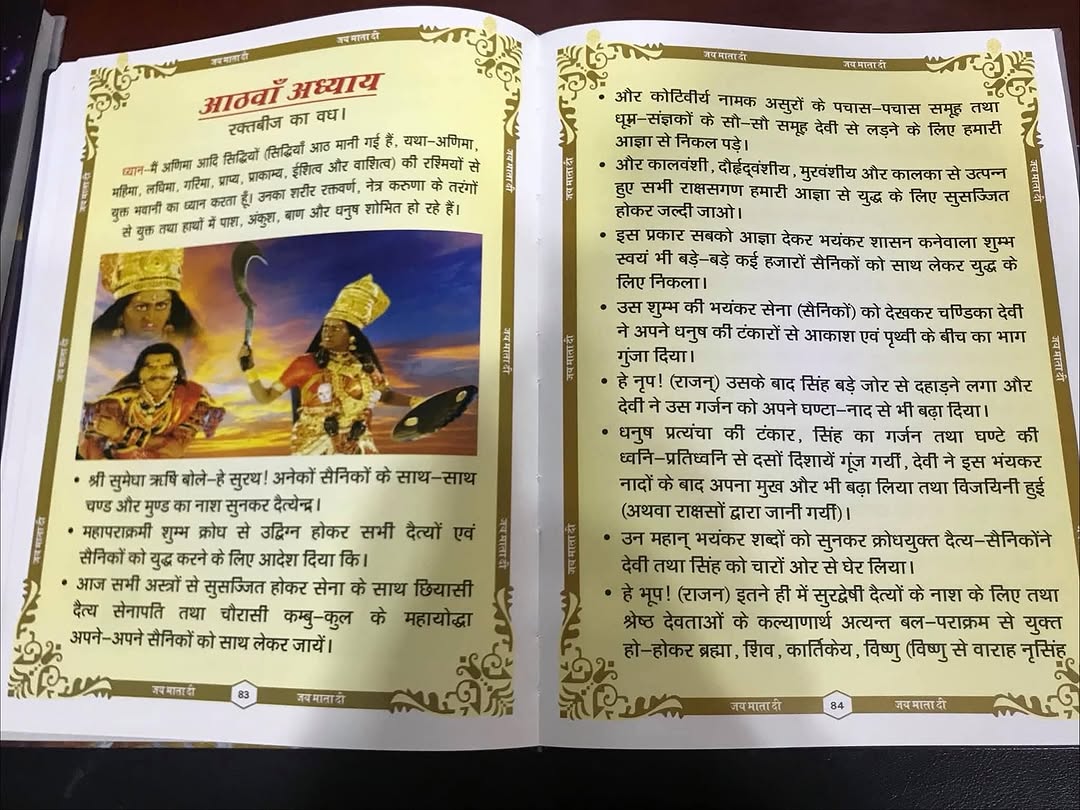 जय माता दी
जय माता दी
आठवाँ अध्याय
रक्तबीज का वध।
ध्यान–मैं अणिमा आदि सिद्धियों (सिद्धियाँ आठ मानी गई हैं, यथा–अणिमा,
महिमा, लघिमा, गरिमा, प्राप्य, प्राकाम्य, ईशित्व और वाशित्व) की रश्मियों से
युक्त भवानी का ध्यान करता हूँ। उनका शरीर रक्तवर्ण, नेत्र करुणा के तरंगों
से युक्त तथा हाथों में पाश, अंकुश, बाण और धनुष शोभित हो रहे हैं।
• श्री सुमेधा ऋषि बोले–हे सुरथ! अनेकों सैनिकों के साथ–साथ
चण्ड और मुण्ड का नाश सुनकर दैत्येन्द्र।
• महापराक्रमी शुम्भ क्रोध से उद्विग्न होकर सभी दैत्यों एवं
सैनिकों को युद्ध करने के लिए आदेश दिया कि।
• आज सभी अस्त्रों से सुसज्जित होकर सेना के साथ छियासी
दैत्य सेनापति तथा चौरासी कम्बु–कुल के महायोद्धा
अपने–अपने सैनिकों को साथ लेकर जायें।
जय माता दी
जय माता दी
जय माता दी
जय माता दी
जय माता दी
जय माता दी
जय माता दी
83
जय माता दी
जय माता दी
जय माता दी
• और कोटिवीर्य नामक असुरों के पचास–पचास समूह तथा
धूम्र–संज्ञकों के सो–सो समूह देवी से लड़ने के लिए हमारी
आज्ञा से निकल पड़े।
• और कालवंशी, दौर्हृद्वंशीय, मुरवंशीय और कालका से उत्पन्न
हुए सभी राक्षसगण हमारी आज्ञा से युद्ध के लिए सुसज्जित
होकर जल्दी जाओ।
• इस प्रकार सबको आज्ञा देकर भयंकर शासन कनेवाला शुम्भ
स्वयं भी बड़े–बड़े कई हजारों सैनिकों को साथ लेकर युद्ध के
लिए निकला।
• उस शुम्भ की भयंकर सेना (सैनिकों) को देखकर चण्डिका देवी
ने अपने धनुष की टंकारों से आकाश एवं पृथ्वी के बीच का भाग
गुंजा दिया।
• हे नृप! (राजन्) उसके बाद सिंह बड़े जोर से दहाड़ने लगा और
देवी ने उस गर्जन को अपने घण्टा–नाद से भी बढ़ा दिया।
• धनुष प्रत्यंचा की टंकार, सिंह का गर्जन तथा घण्टे की
ध्वनि–प्रतिध्वनि से दसों दिशायें गूंज गयीं, देवी ने इस भंयकर
नादों के बाद अपना मुख और भी बढ़ा लिया तथा विजयिनी हुई
(अथवा राक्षसों द्वारा जानी गयीं)।
• उन महान् भयंकर शब्दों को सुनकर क्रोधयुक्त दैत्य–सैनिकोंने
देवी तथा सिंह को चारों ओर से घेर लिया।
• हे भूप! (राजन) इतने ही में सुरद्वेषी दैत्यों के नाश के लिए तथा
श्रेष्ठ देवताओं के कल्याणार्थ अत्यन्त बल–पराक्रम से युक्त
हो–होकर ब्रह्मा, शिव, कार्तिकेय, विष्णु (विष्णु से वाराह नृसिंह
जय माता दी
जय माता दी
जय माता दी
जय माता दी
जय माता दी
जय माता दी
84
जय माता दी